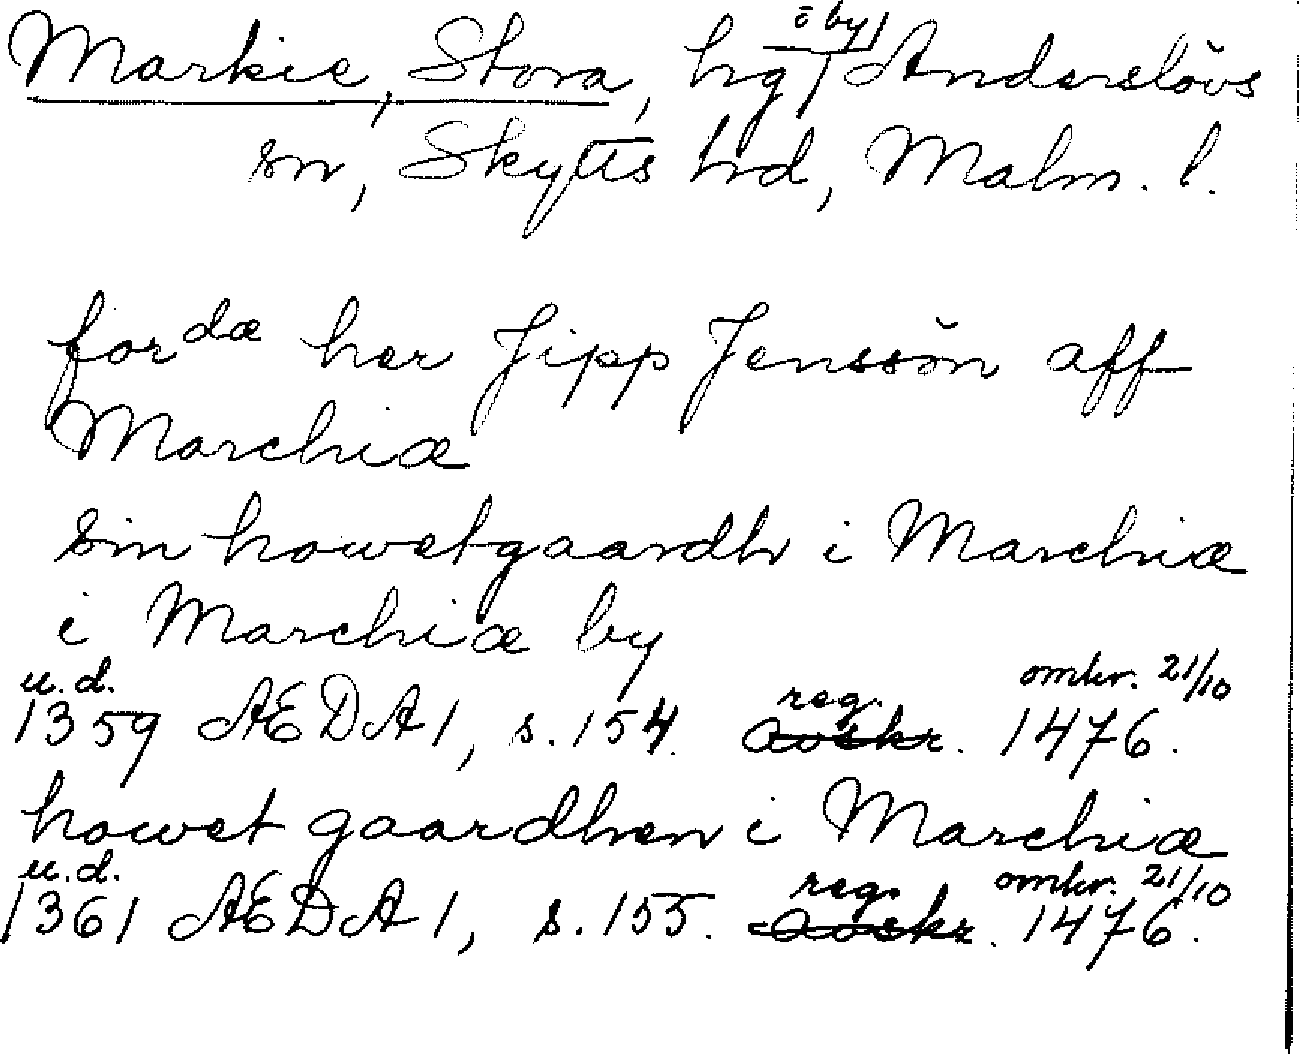 i by
Markie, Stora, hrg, Anderslövs
sn, Skytts hd, Malm. l.
for dæ her Jipp Jenssön aff
Marchiæ
sin howetgaardh i Marchiæ
i Marchiæ by
u.d. reg. omkr. 21/10
1359 ÆDA 1, s. 154. avskr. 1476.
howet gaardhen i Marchiæ
u.d. reg. omkr. 21/10
1361 ÆDA 1, s. 155. avskr. 1476.